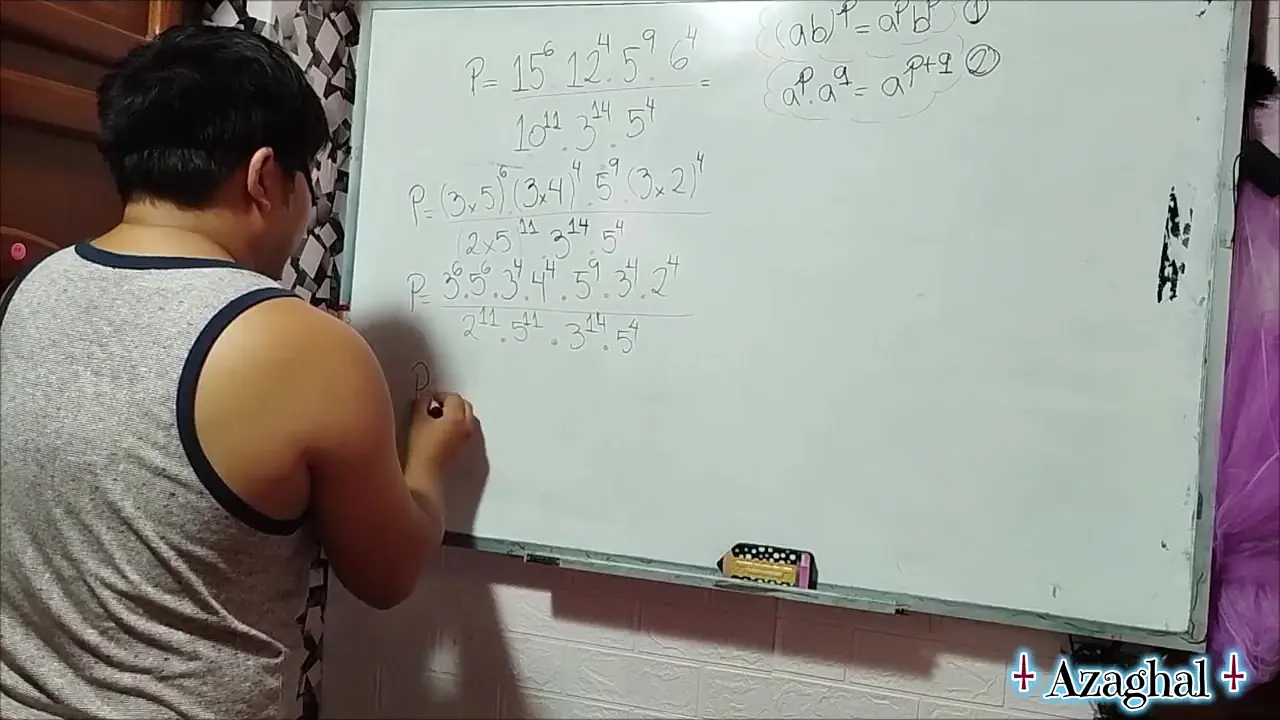 P = 15⁶ 12⁴ . 5⁹ . 6⁴ =
10¹¹ . 3¹⁴ . 5⁴
(ab)ᵖ = aᵖbᵖ ①
aᵖ . a^q = a^(p+q) ②
P = (3x5)⁶ . (3x4)⁴ . 5⁹ . (3x2)⁴
(2x5)¹¹ . 3¹⁴ . 5⁴
P = 3⁶ . 5⁶ . 3⁴ . 4⁴ . 5⁹ . 3⁴ . 2⁴
2¹¹ . 5¹¹ . 3¹⁴ . 5⁴
P
Azaghal